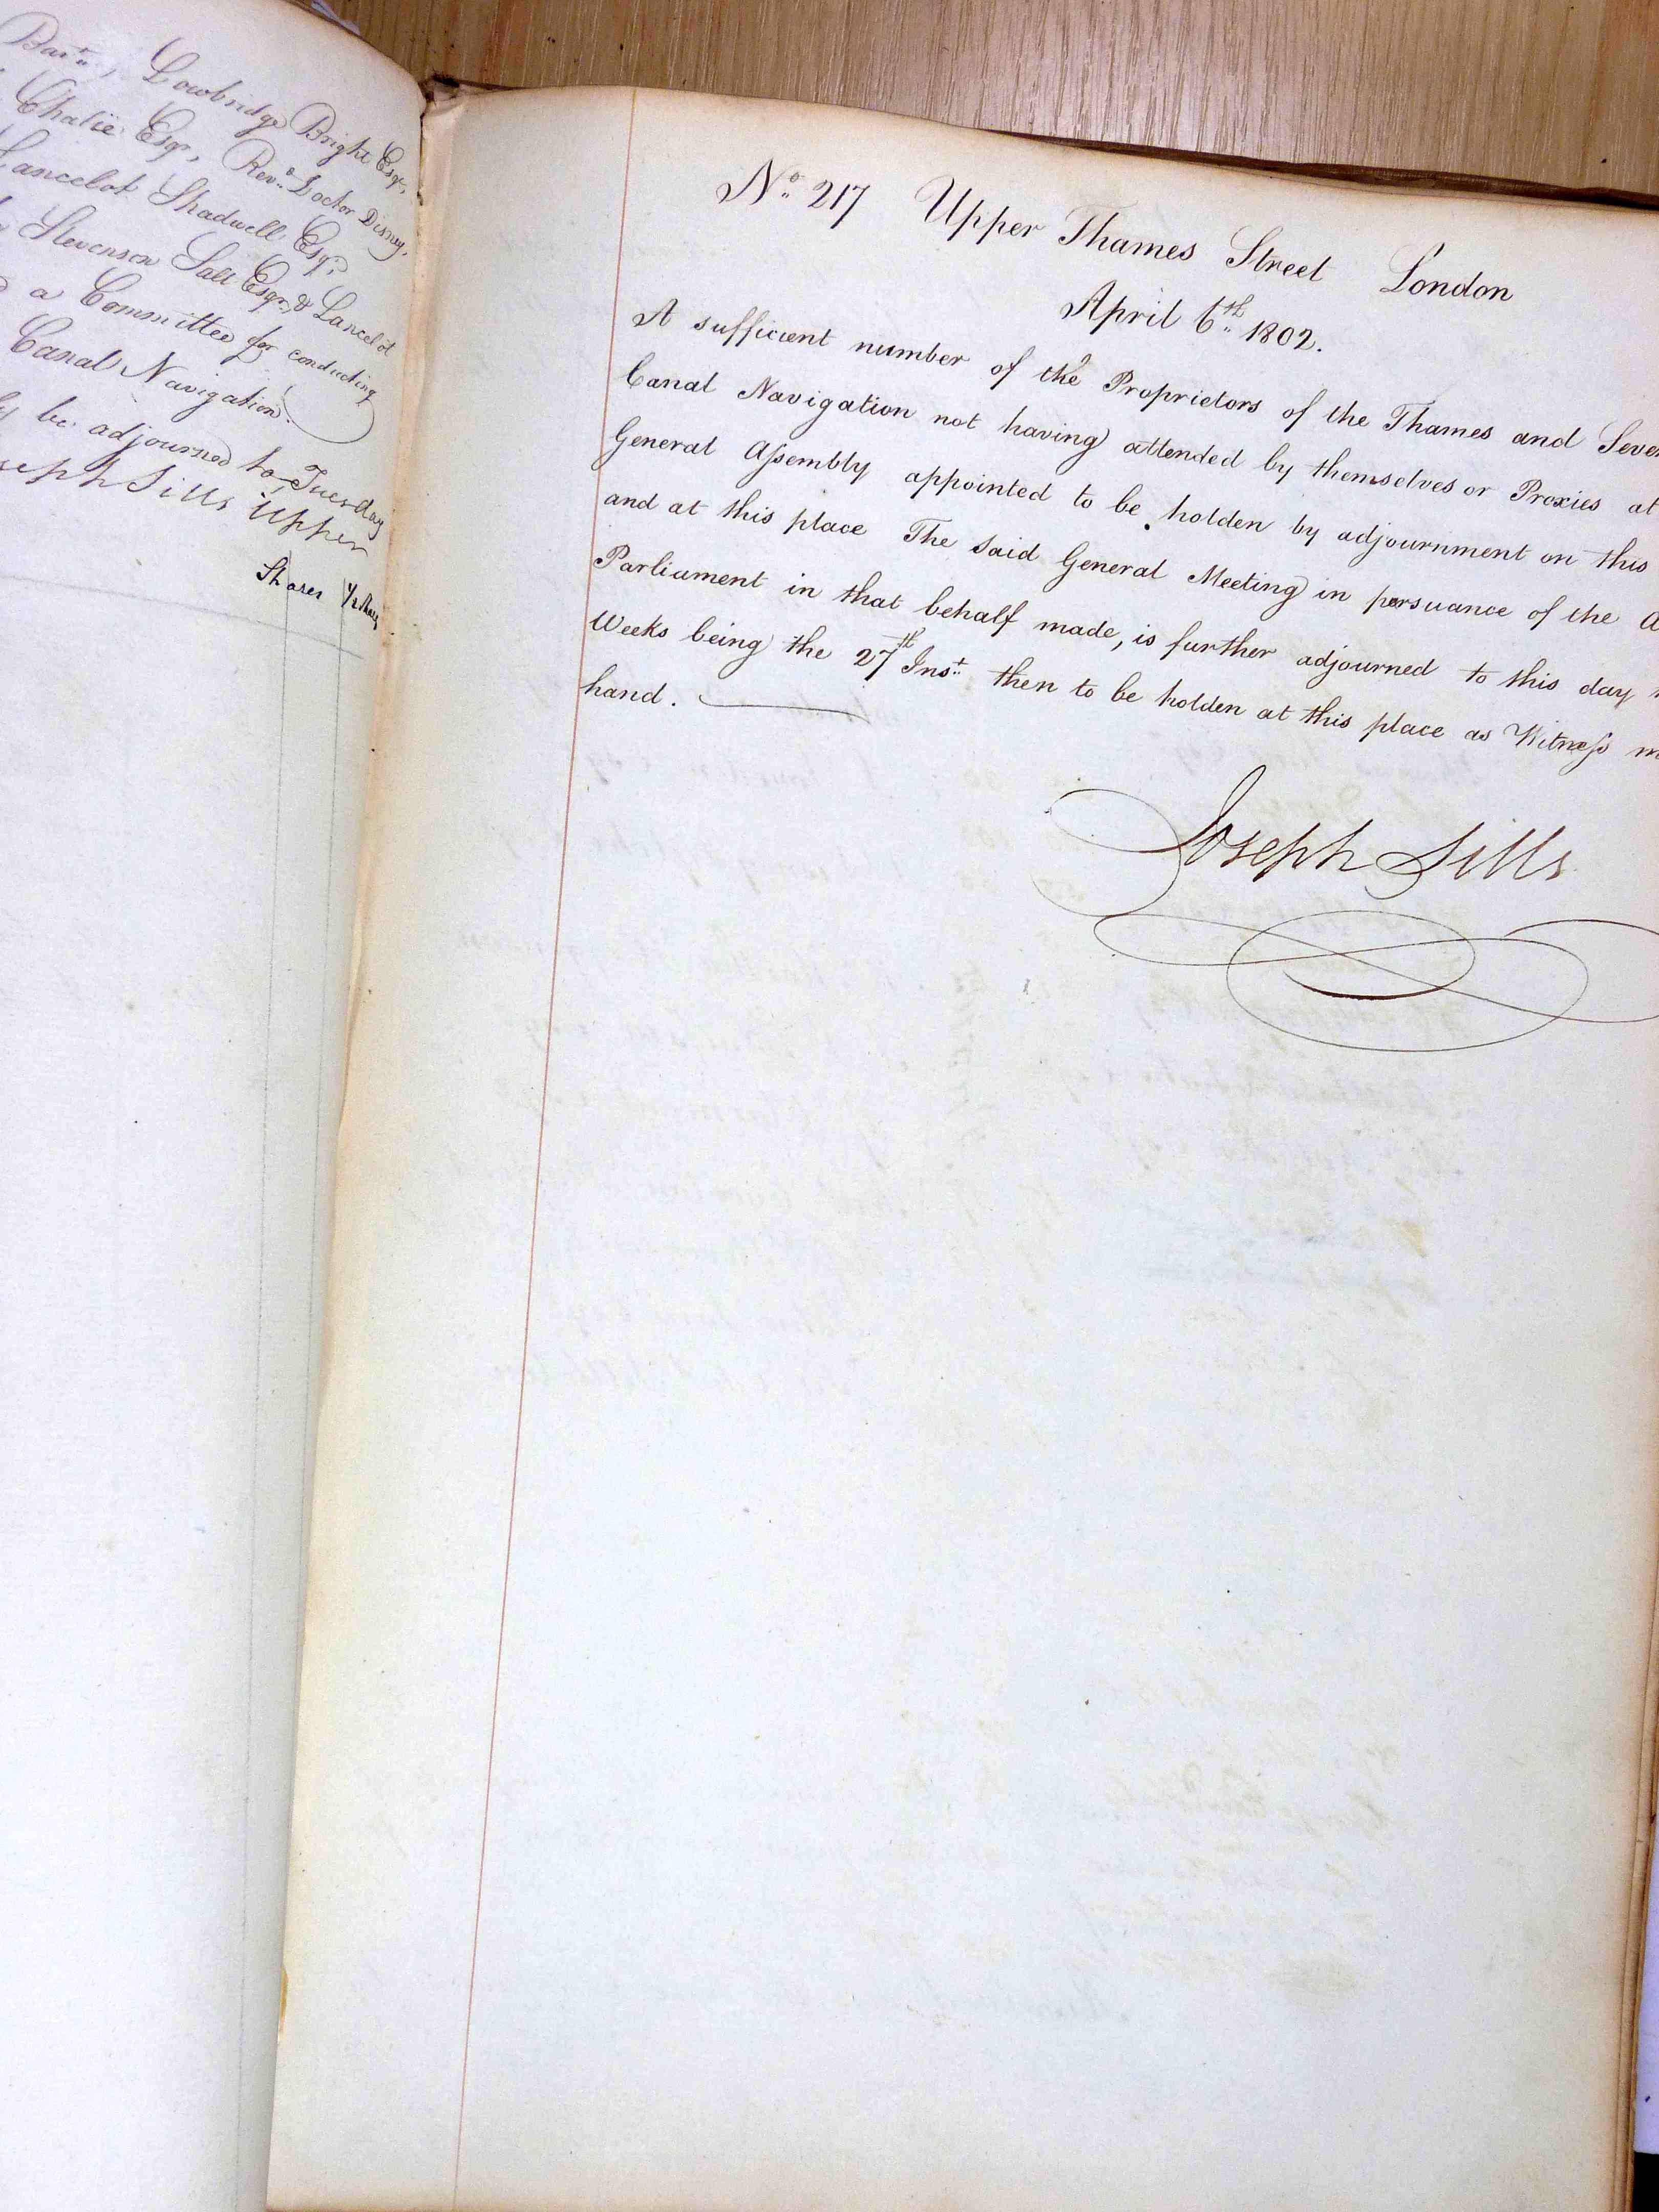 Bart., Lowbridge Bright Esqr.,
Chalié Esqr., Revd. Doctor Disney,
Lancelot Shadwell Esqr.
Stevenson Salt Esqr., & Lancelot
a Committee for conducting
Canal Navigation.
be adjourned to Tuesday
seph Sills Upper
Shares ½ Shares
No. 217 Upper Thames Street London
April 6th. 1802.
A sufficient number of the Proprietors of the Thames and Sever
Canal Navigation not having attended by themselves or Proxies at
General Assembly appointed to be holden by adjournment on this
and at this place The said General Meeting in persuance of the A
Parliament in that behalf made, is further adjourned to this day
Weeks being the 27th Inst. then to be holden at this place as Witness m
hand.
Joseph Sills